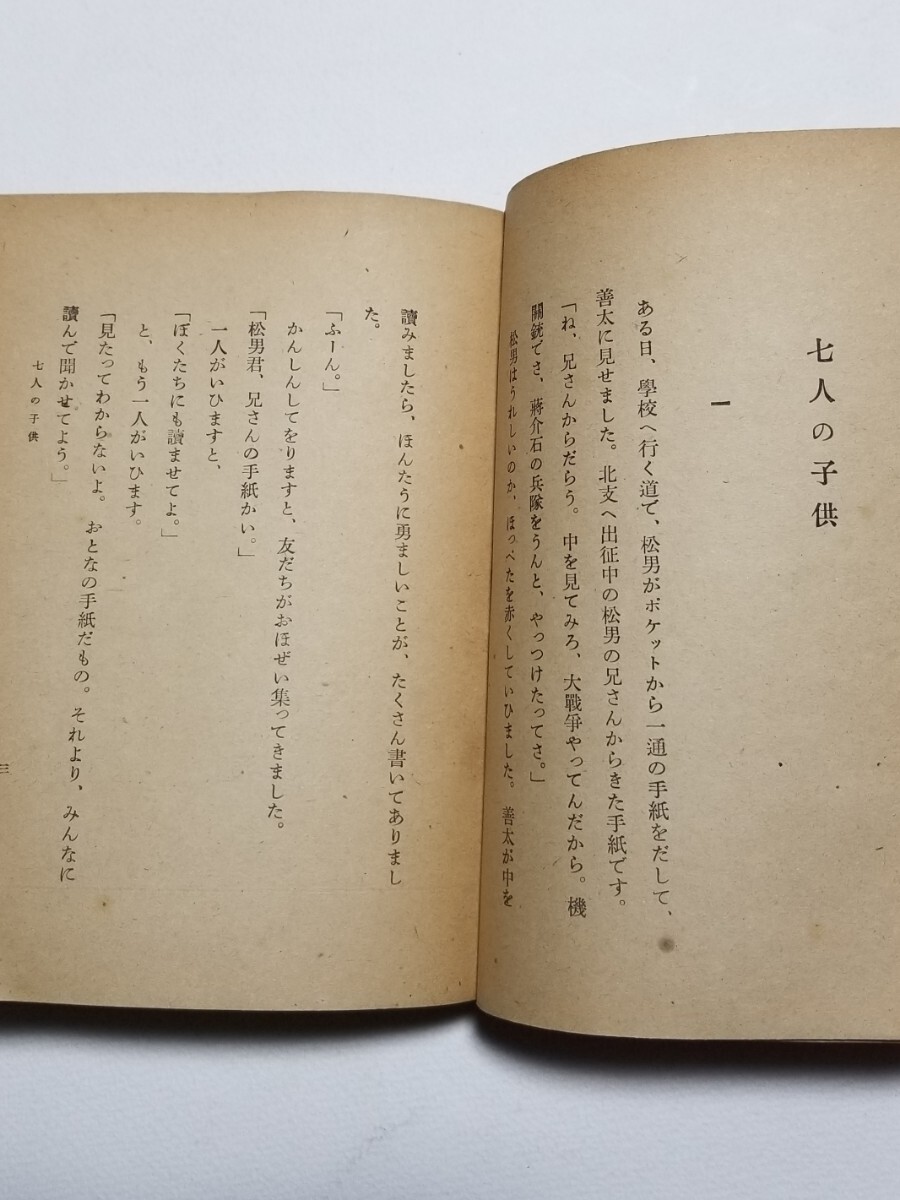 七人の子供
一
ある日、學校へ行く道で、松男がポケットから一通の手紙をだして、
善太に見せました。北支へ出征中の松男の兄さんからきた手紙です。
「ね、兄さんからだらう。中を見てみろ、大戰爭やってんだから。機
關銃でさ、蔣介石の兵隊をうんと、やっつけたってさ。」
松男はうれしいのか、ほっぺたを赤くしていひました。善太が中を
讀みましたら、ほんたうに勇ましいことが、たくさん書いてありまし
た。
「ふーん。」
かんしんしてをりますと、友だちがおほぜい集ってきました。
「松男君、兄さんの手紙かい。」
一人がいひますと、
「ぼくたちにも讀ませてよ。」
と、もう一人がいひます。
「見たってわからないよ。おとなの手紙だもの。それより、みんなに
讀んで聞かせてよう。」
七人の子供
三